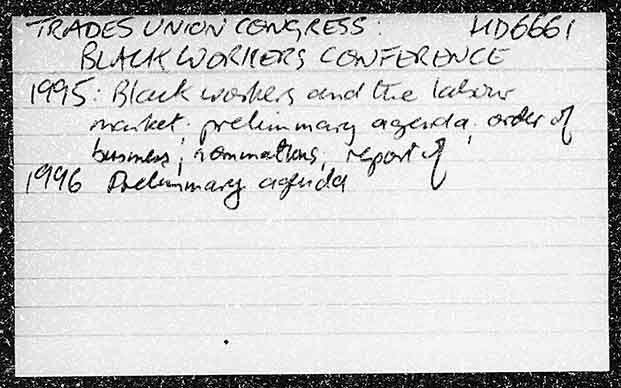 TRADES UNION CONGRESS: HD6661
BLACK WORKERS CONFERENCE
1995: Black workers and the labour
market: preliminary agenda; order of
business; nominations; report of
1996 Preliminary agenda